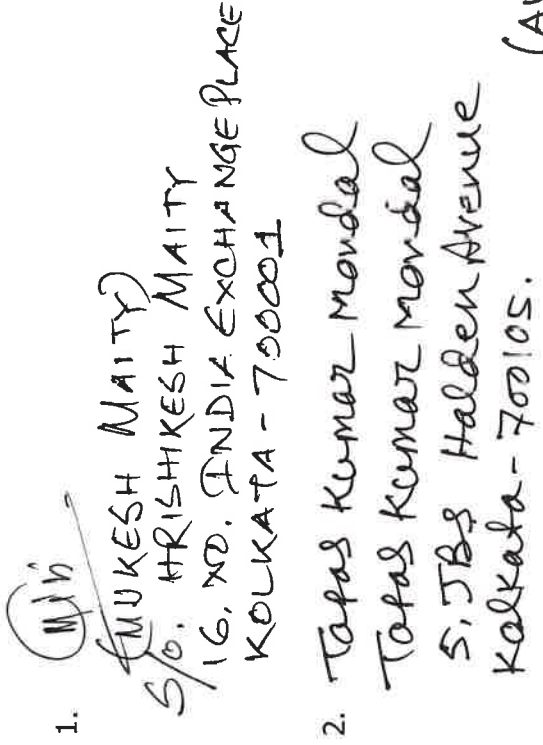 1.
(MUKESH MAITY)
S/o. HRISHIKESH MAITY
16, NO. INDIA EXCHANGE PLACE
KOLKATA - 700001
2. Tapas Kumar Mondal
Tapas Kumar Mondal
5, JBS Halden Avenue
Kolkata - 700105.